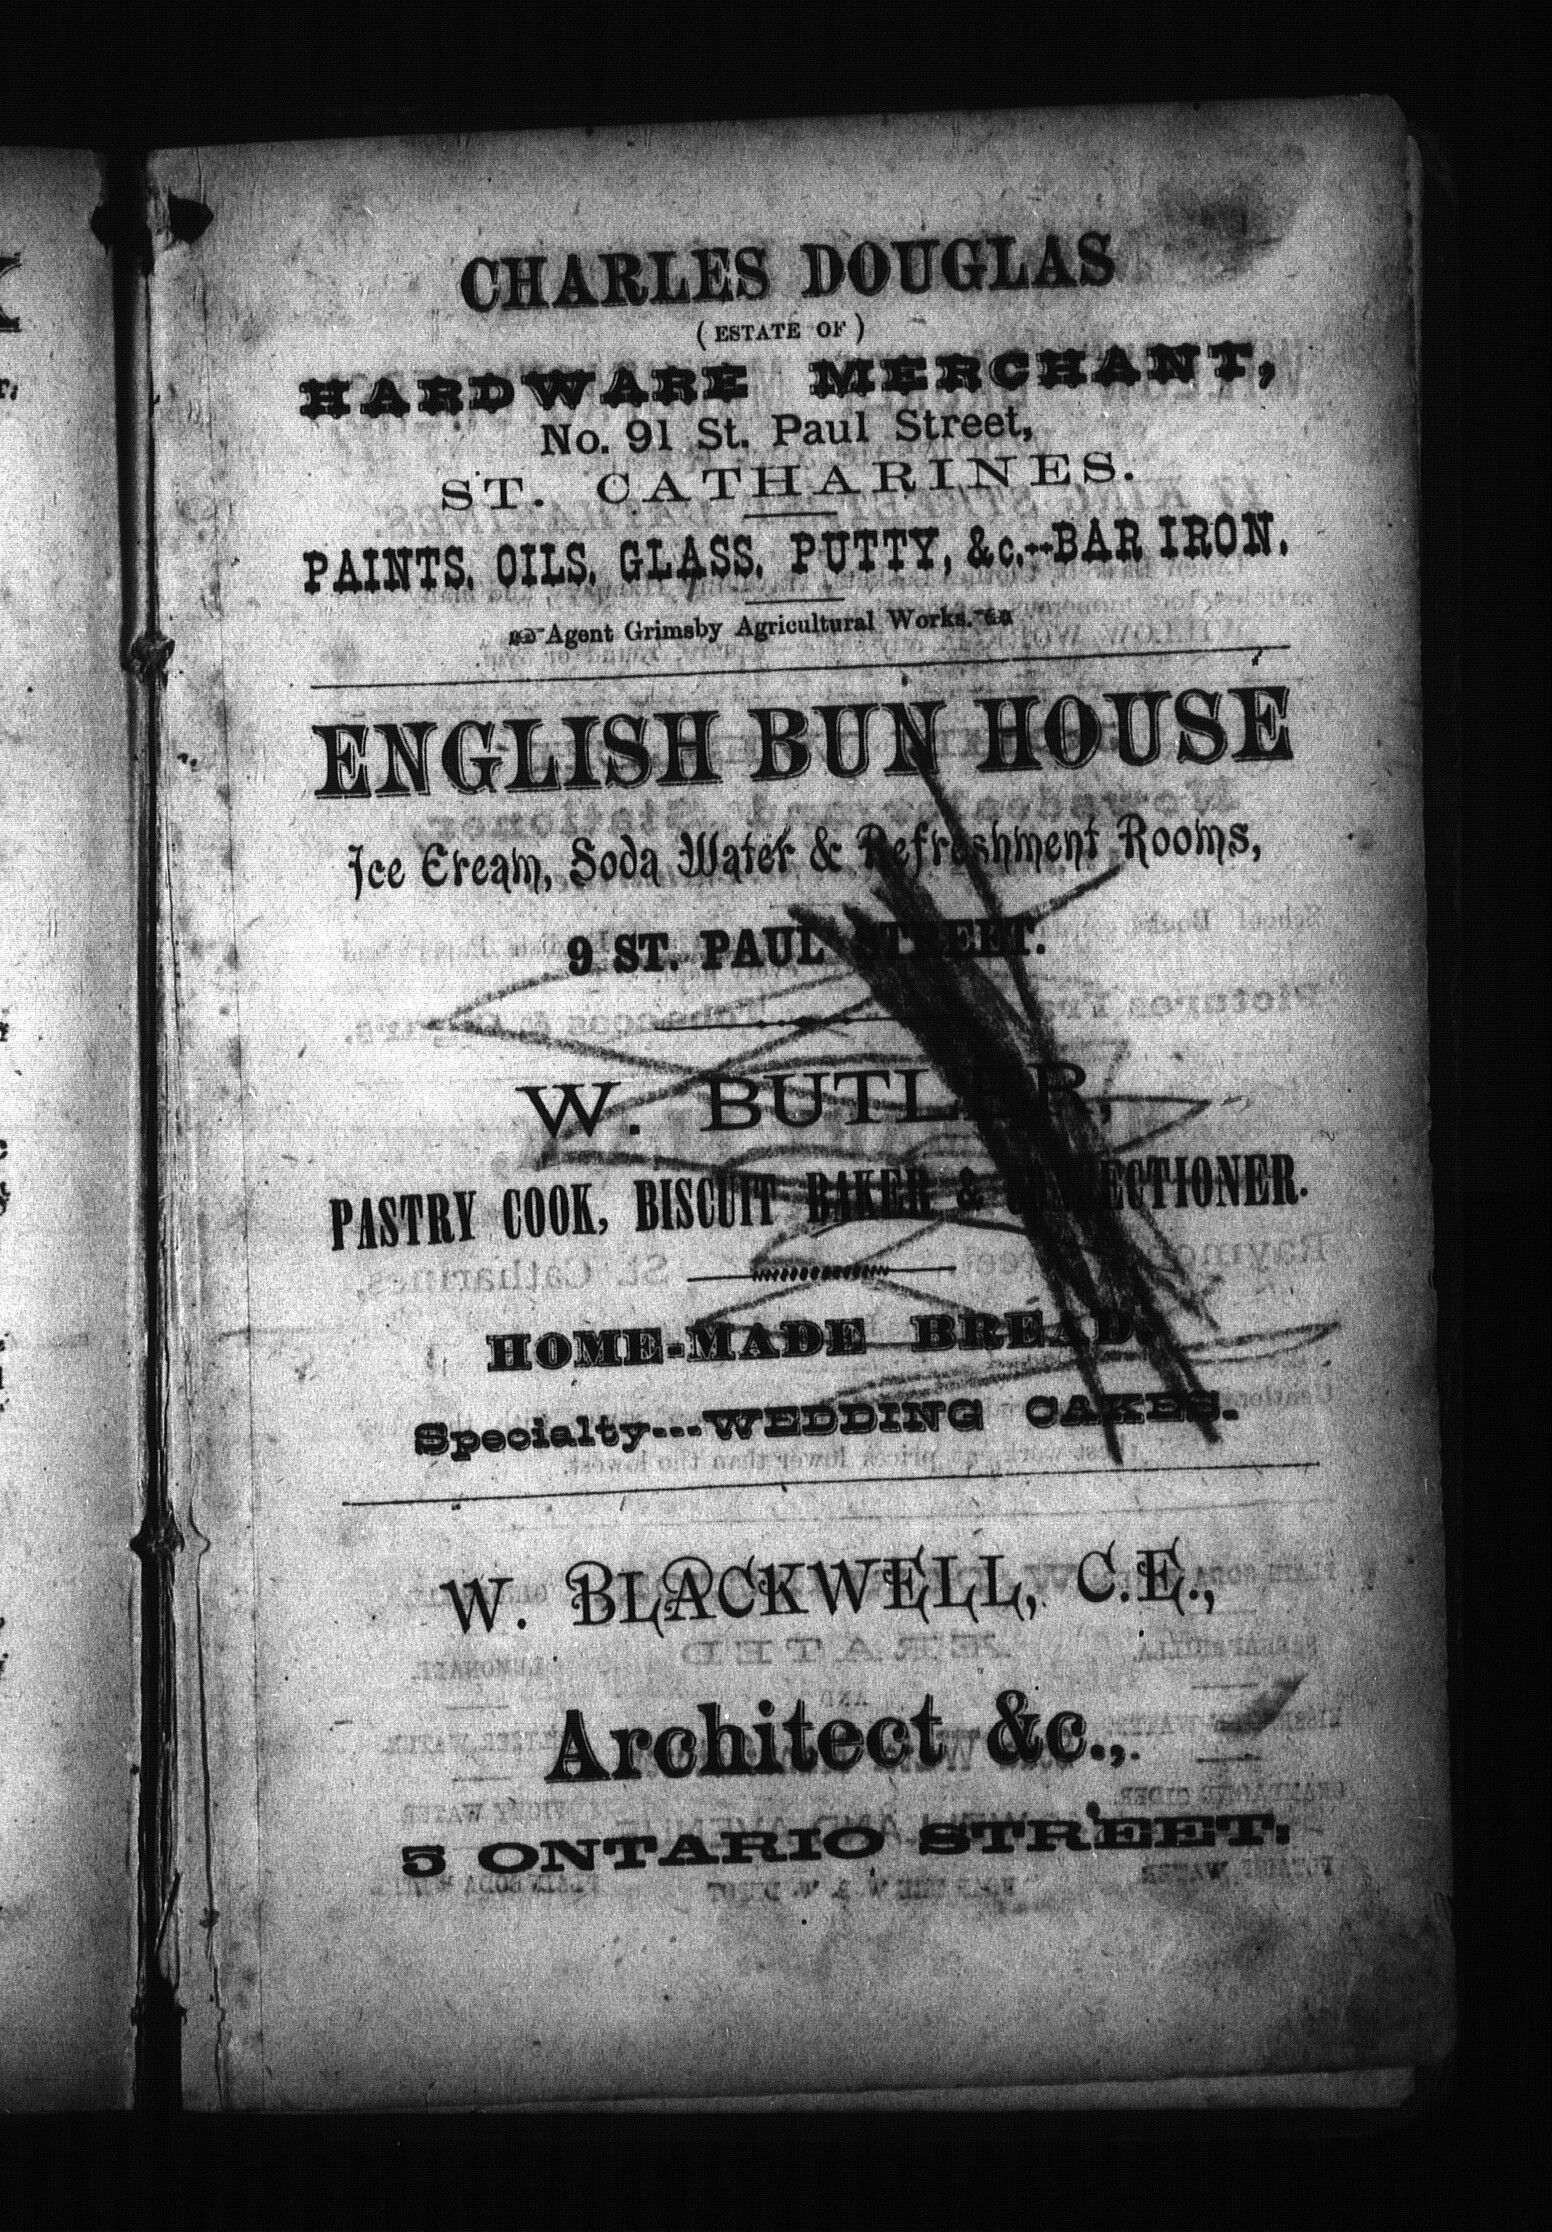 CHARLES DOUGLAS
( ESTATE OF )
HARDWARE MERCHANT,
No. 91 St. Paul Street,
ST. CATHARINES.
PAINTS, OILS, GLASS, PUTTY, &c.--BAR IRON.
Agent Grimsby Agricultural Works.
ENGLISH BUN HOUSE
Ice Cream, Soda Water & Refreshment Rooms,
9 ST. PAUL STREET.
W. BUTLER,
PASTRY COOK, BISCUIT BAKER & CONFECTIONER.
HOME-MADE BREAD.
Specialty---WEDDING CAKES.
W. BLACKWELL, C.E.,
Architect &c.,
5 ONTARIO STREET.